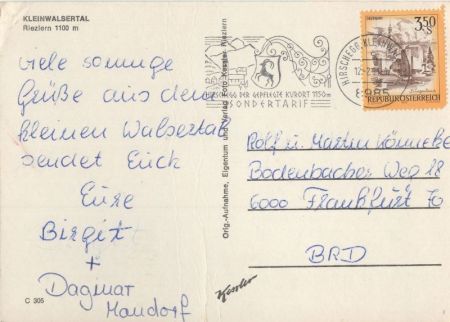 KLEINWALSERTAL
Riezlern 1100 m
viele sonnige
Grüße aus dem
kleinen Walsertal
sendet Euch
Eure
Birgit
+
Dagmar
Mandorf
C 305
Orig.-Aufnahme, Eigentum und Verlag Foto Kessler, Riezlern
HIRSCHEGG DER GEPFLEGTE KURORT 1150m
SONDERTARIF
HIRSCHEGG, KLEINWAL
8985
3.50
S
REPUBLIK ÖSTERREICH
Rolf u. Martin Könneke
Bodenbacher Weg 18
6000 Frankfurt 70
BRD
Kessler